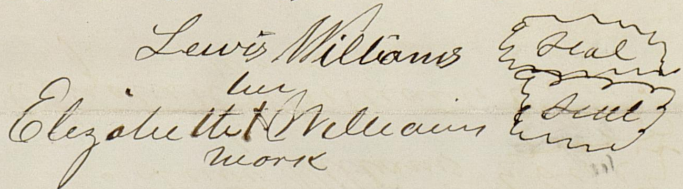 Lewis Williams Seal
her
Elizabeth X Williams Seal
mark